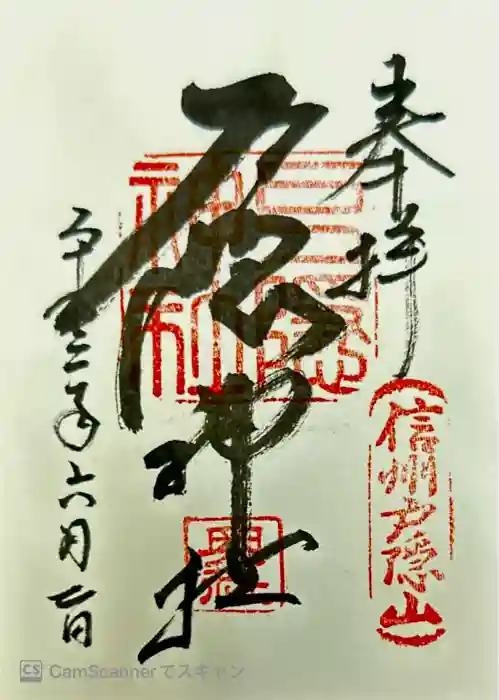 奉拝
信州戸隠山
戸隠神社
年六月二日
CS CamScanner でスキャン